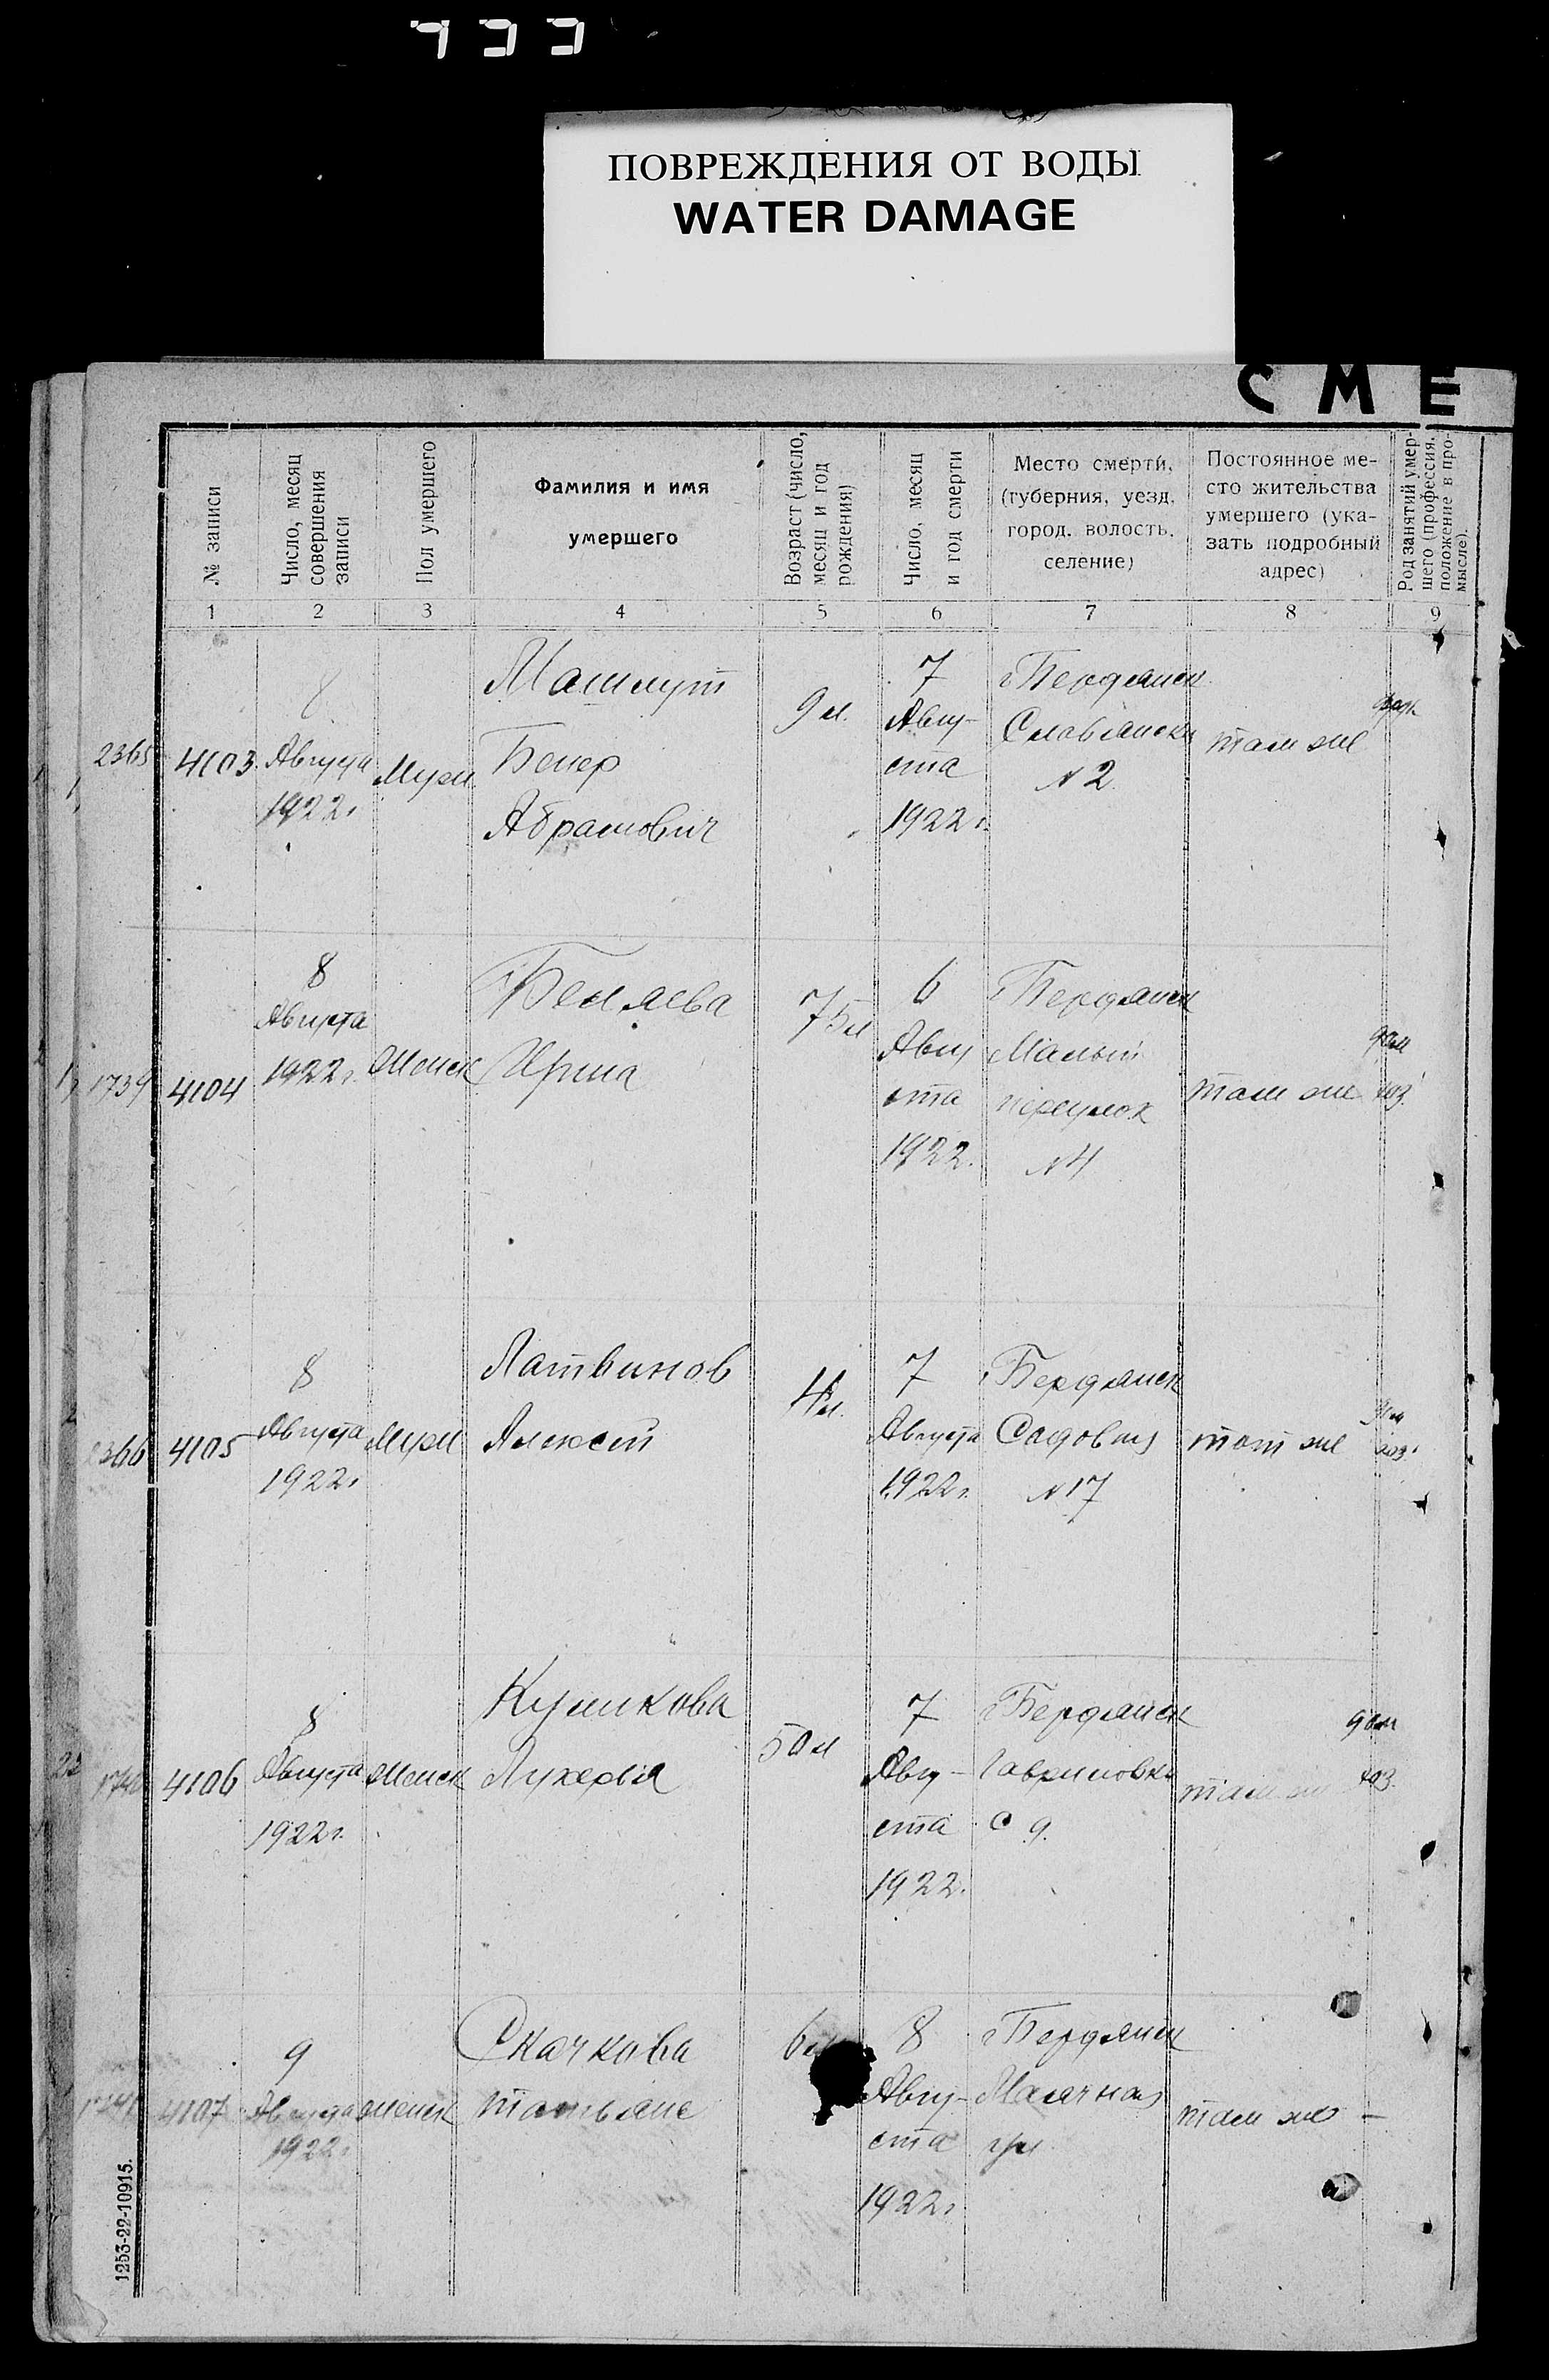 ПОВРЕЖДЕНИЯ ОТ ВОДЫ
WATER DAMAGE
СМЕ
№ записи
Число, месяц
совершения
записи
Пол умершего
Фамилия и имя
умершего
Возраст (число,
месяц и год
рождения)
Число, месяц
и год смерти
Место смерти,
(губерния, уезд,
город, волость,
селение)
Постоянное ме-
сто жительства
умершего (ука-
зать подробный
адрес)
Род занятий умер-
шего (профессия,
положение в про-
мысле).
1 2 3 4 5 6 7 8 9
2365
4103
8
Августа
1922г
Муж
Машмут
Бекер
Абрамович
9 м.
7
Авгу-
ста
1922 г.
г Бердянск
Славянская
№ 2
там же
1739
4104
8
Августа
1922 г.
Женск
Беляева
Ирина
75 л
6
Авгу
ста
1922.
Бердянск
Малый
переулок
№ 4
там же
дом
хоз.
2366
4105
8
Августа
1922г
Муж
Латвинов
Алексей
7
Августа
1922 г.
Бердянск
Садовая
№ 17
там же
хоз.
4106
8
Августа
1922 г.
Женск
Куликова
Лукерья
50 л
7
Авгу-
ста
1922.
г Бердянск
с д.
там же
дом
хоз.
4107
9
Августа
1922 г
Женск
Скачкова
8
Авгу-
ста
1922 г
г Бердянск
там же —
1253-22-10915.